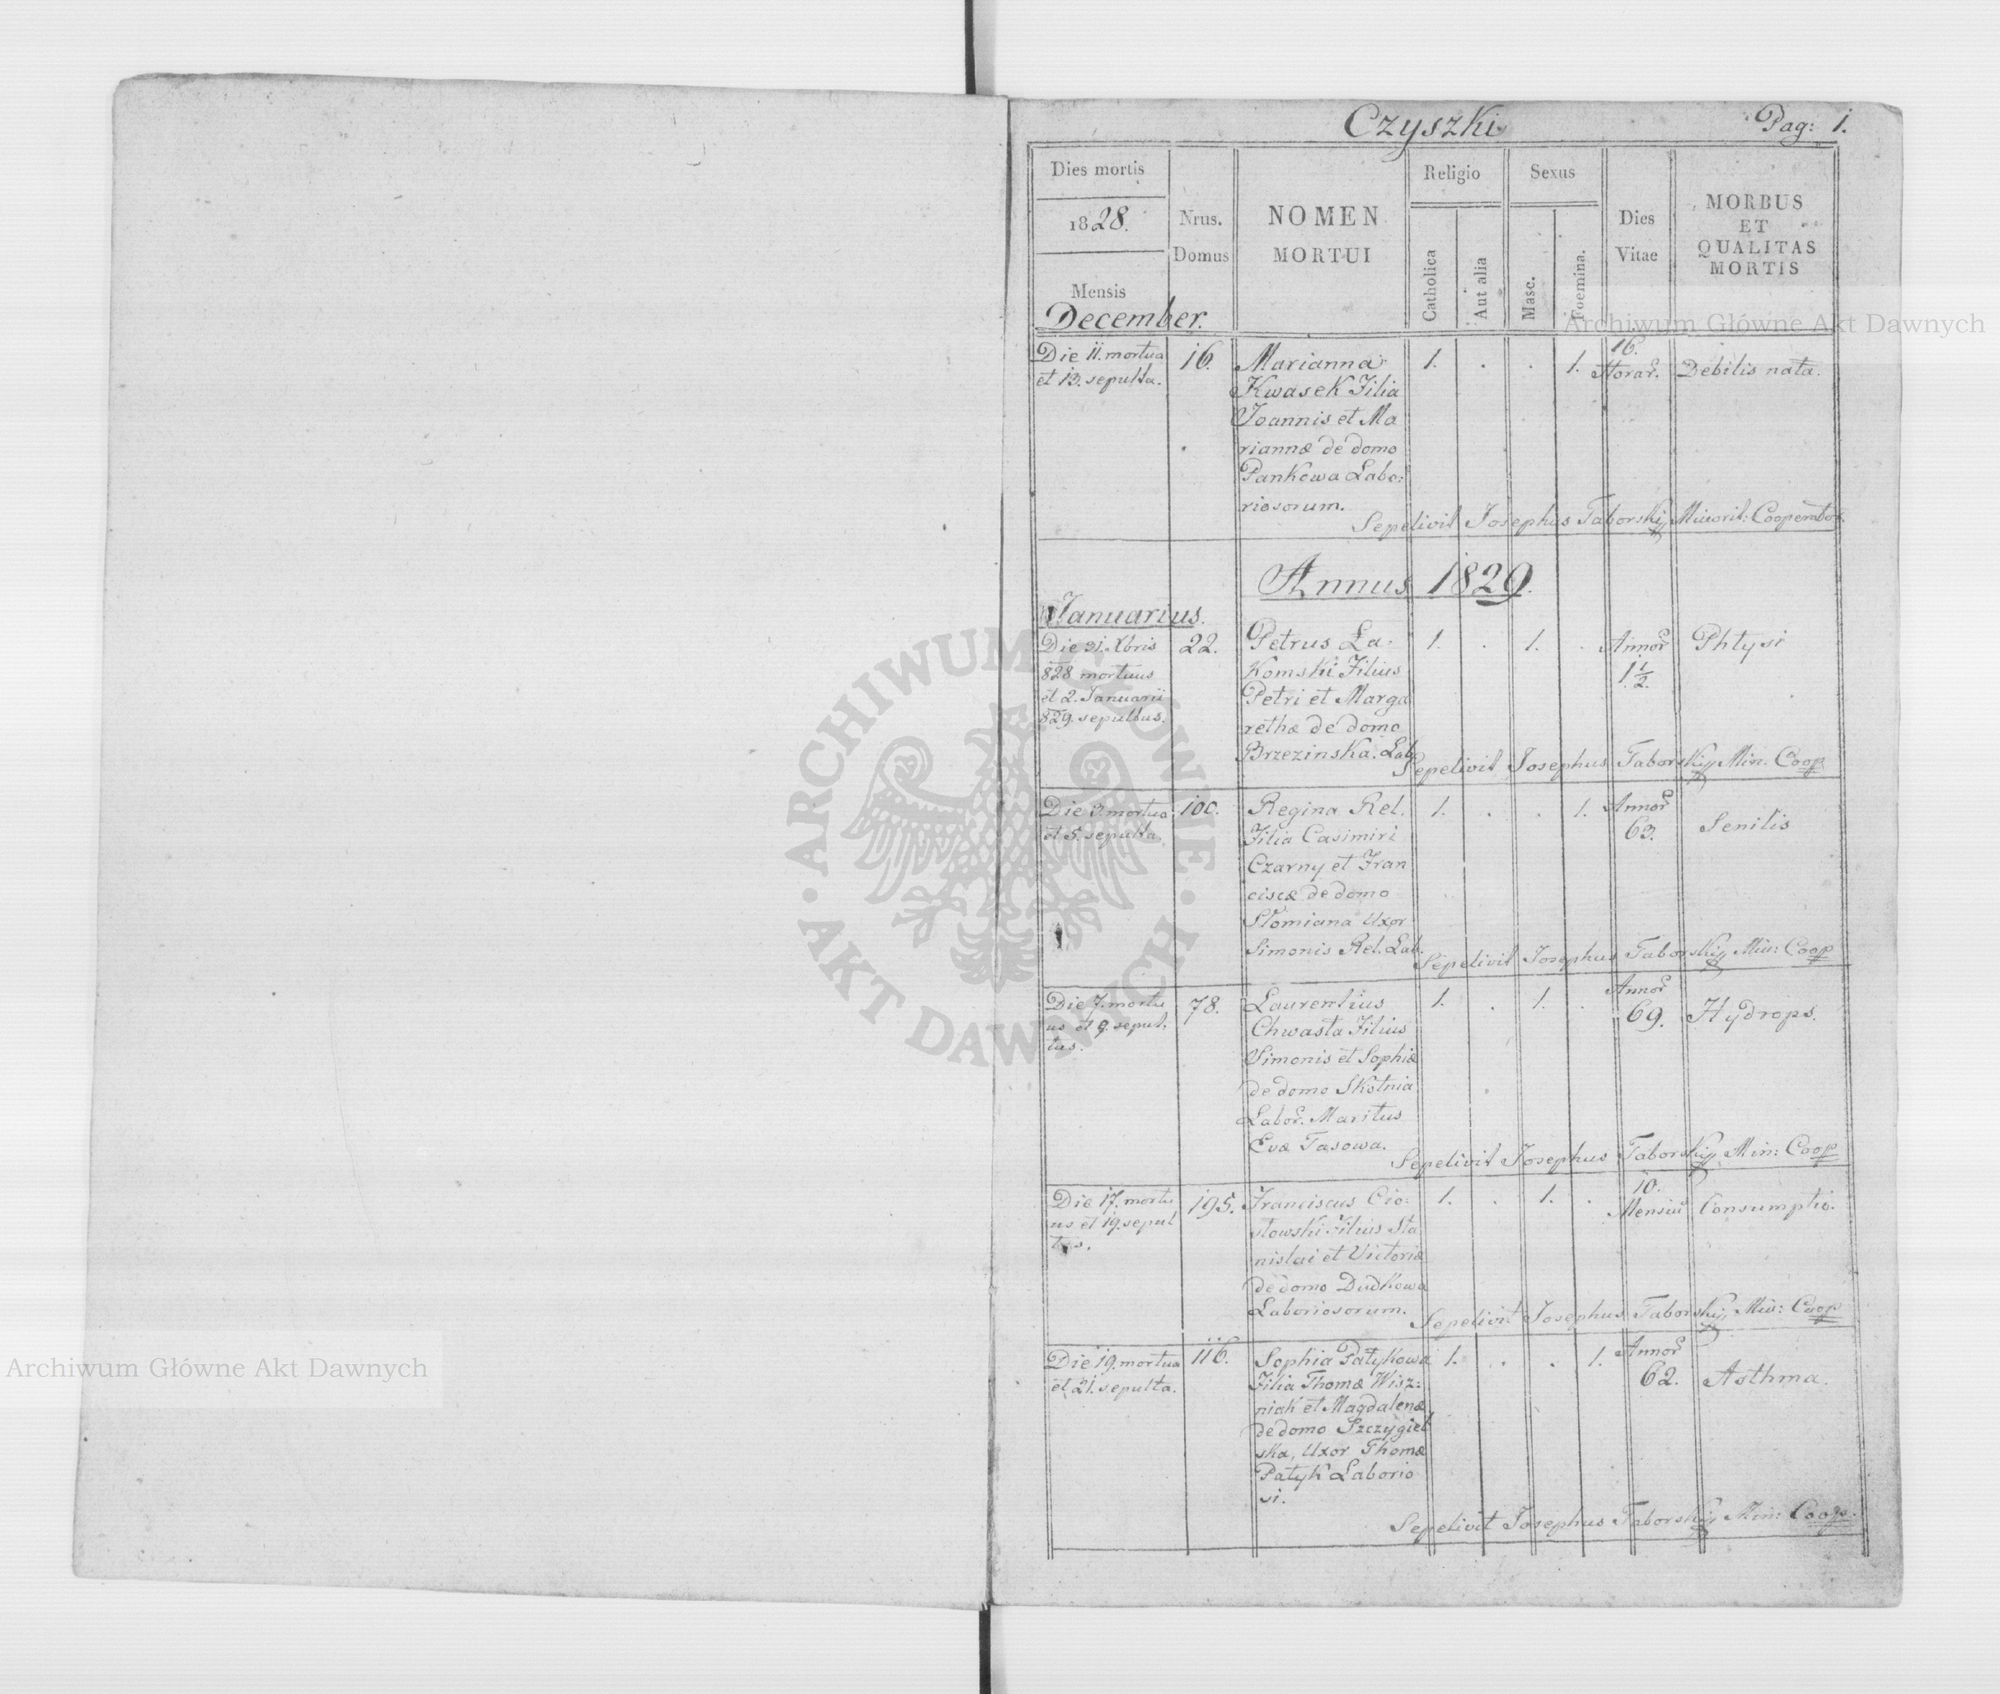 Czyszki
Pag: 1.
Dies mortis
1828.
Mensis
December.
Nrus.
Domus
NOMEN
MORTUI
Religio
Catholica
Aut alia
Sexus
Masc.
Foemina.
Dies
Vitae
MORBUS
ET
QUALITAS
MORTIS
Die 11. mortua
et 13. sepulta.
16.
Marianna
Kwasek Filia
Joannis et Ma
riannæ de domo
Pankowa Labo:
riosorum.
1. . . 1.
16.
Horar.
Debilis nata.
Sepelivit Josephus Taborskij Minorit: Cooperator.
Annus 1829.
Januarius.
Die 31. Xbris
828 mortuus
et 2. Januarii
829. sepultus.
22.
Petrus La-
komski Filius
Petri et Marga
rethæ de domo
Brzezinska. Lab.
1. . 1. .
Annor
1 1/2.
Phtysi
Sepelivit Josephus Taborskij Min. Coop
Die 3. mortua
et 5. sepulta
100.
Regina Rel.
Filia Casimiri
Czarny et Fran
ciscæ de domo
Słomiana Uxor
Simonis Rel. Lab.
1. . . 1.
Annor
63.
Senilis
Sepelivit Josephus Taborskij Min: Coop
Die 7. mortu
us et 9. sepul.
tus.
78.
Laurentius
Chwasta Filius
Simonis et Sophiæ
de domo Skotnia
Labor. Maritus
Evæ Tasowa.
1. . 1. .
Annor
69.
Hydrops.
Sepelivit Josephus Taborskij Min: Coop
Die 17. mortu
us et 19. sepul
tus.
195.
Franciscus Cio:
słowski Filius Sta
nislai et Victoriæ
de domo Dudkowa
Laboriosorum.
1. . 1. .
10.
Mensiu
Consumptio.
Sepelivit Josephus Taborskij Min: Coop
Die 19. mortua
et 21. sepulta.
116.
Sophia Patykowa
Filia Thomæ Wisz:
niak et Magdalenæ
de domo Szczygiel
ska, Uxor Thomæ
Patyk Laborio
si.
1. . . 1.
Annor
62.
Asthma.
Sepelivit Josephus Taborskij Min: Coop.
Archiwum Główne Akt Dawnych
ARCHIWUM GŁÓWNE · AKT DAWNYCH ·
Archiwum Główne Akt Dawnych